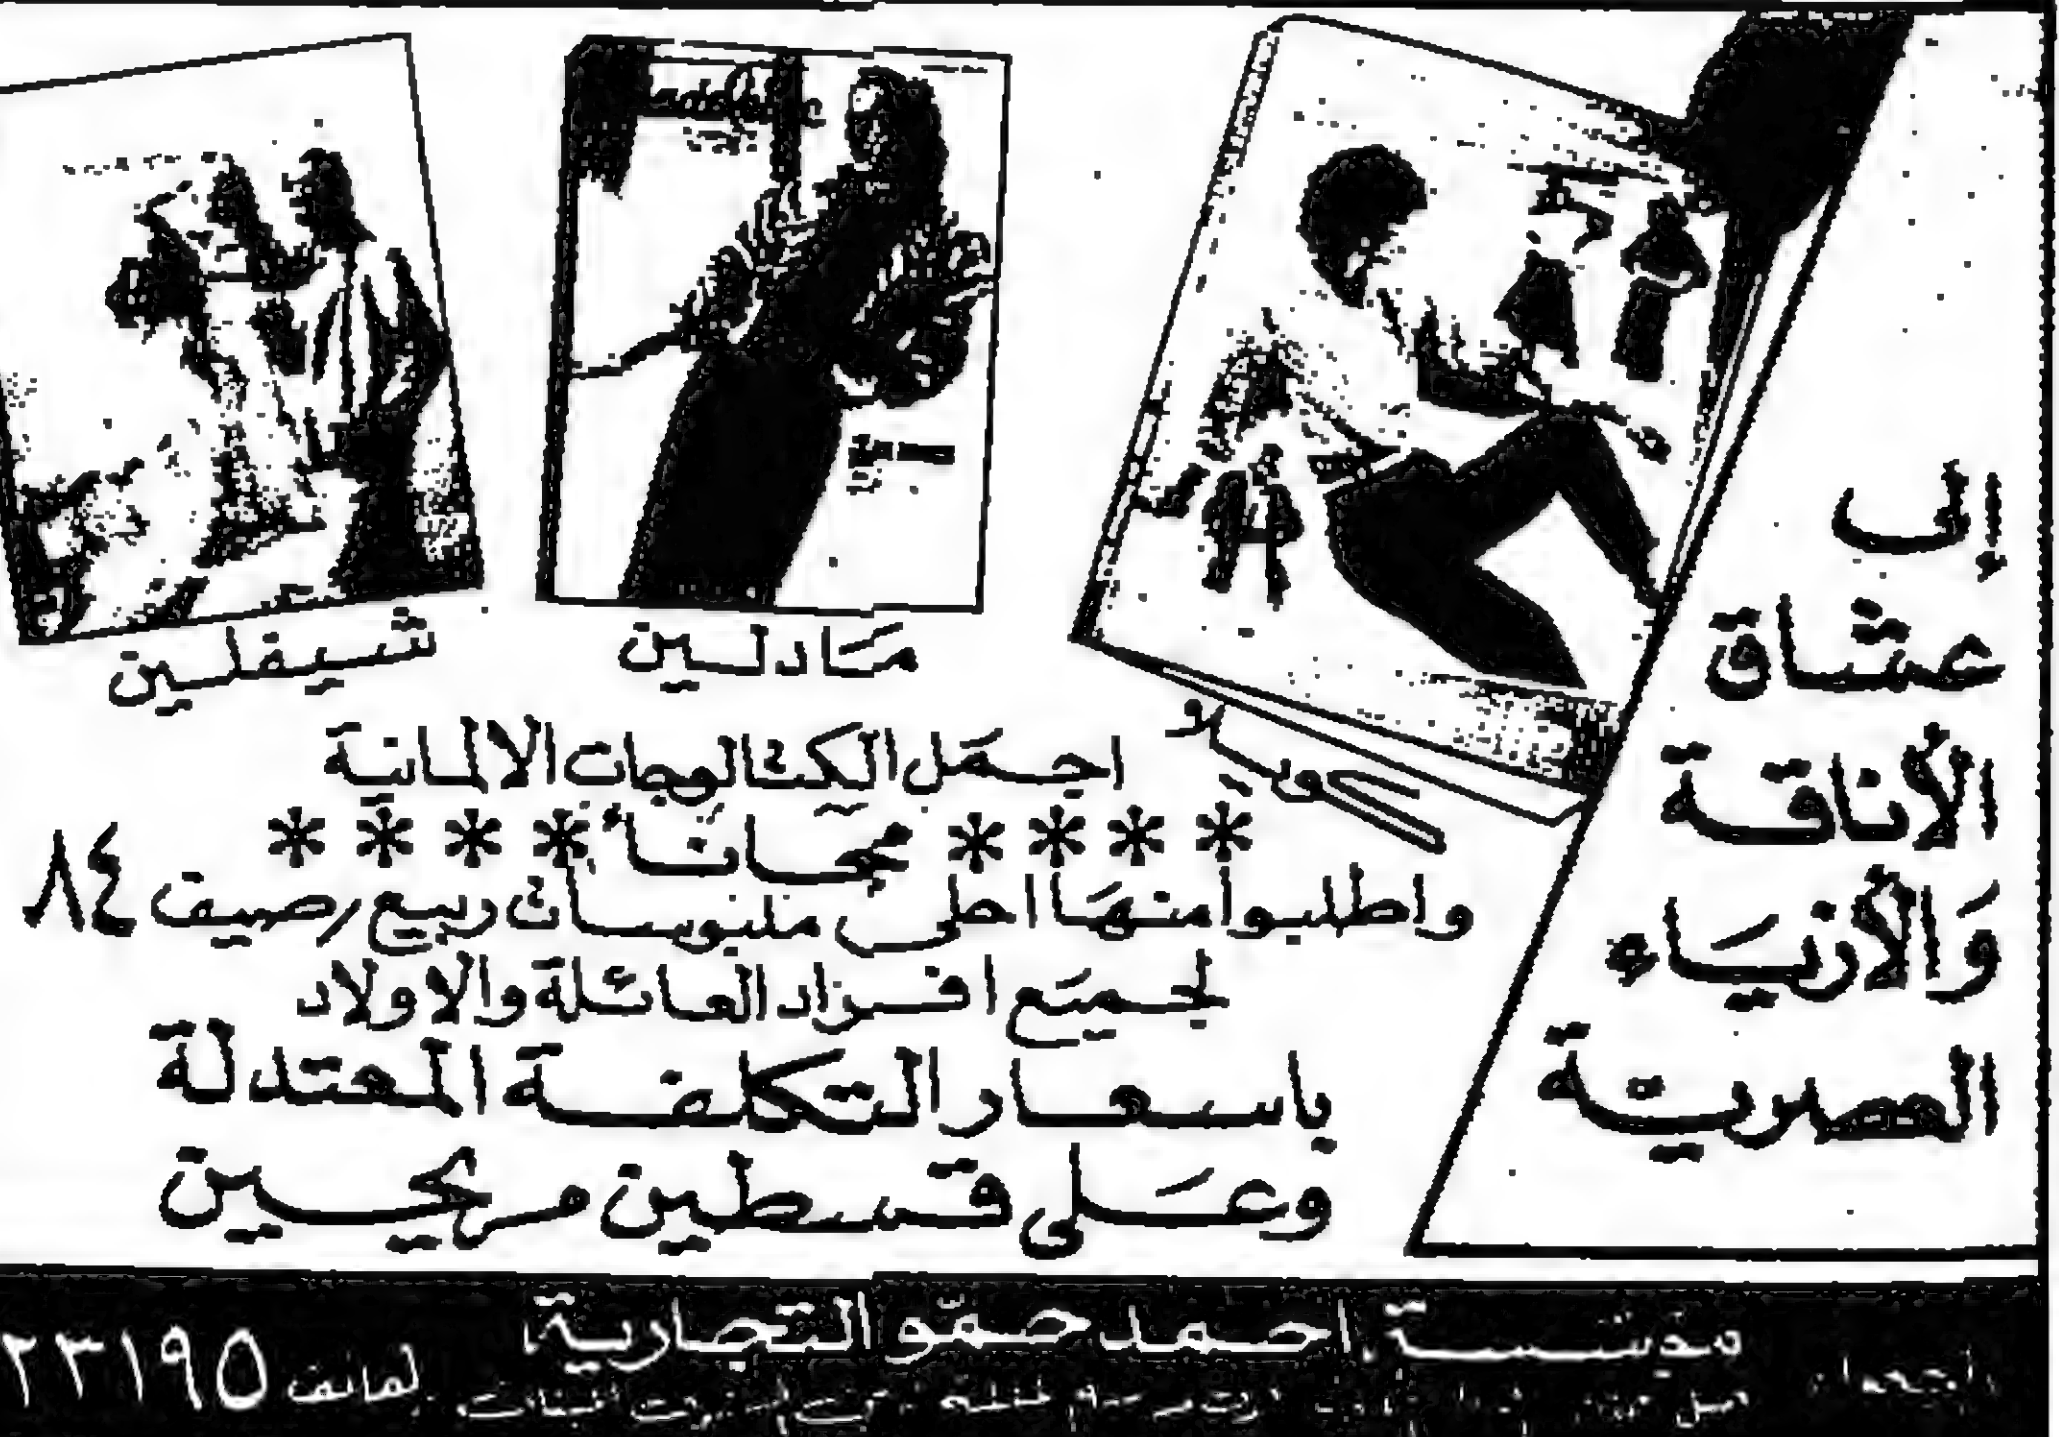 إلى
عشاق
الأناقة
وَالأزيَاء
العصريّة
مَادلين
شيفلين
اجمَل الكتالوجات الالمانية
**** مجاناً ****
واطلبوا منهَا احلى ملبوسات ربيع/صيف ٨٤
لجميَع افراد العائلة والاولاد
باسعار التكلفة المعتدلة
وعَلى قسطين مريحين
راجعوا
مؤسسة احمد حمّو التجارية
هاتف ٢٣١٩٥